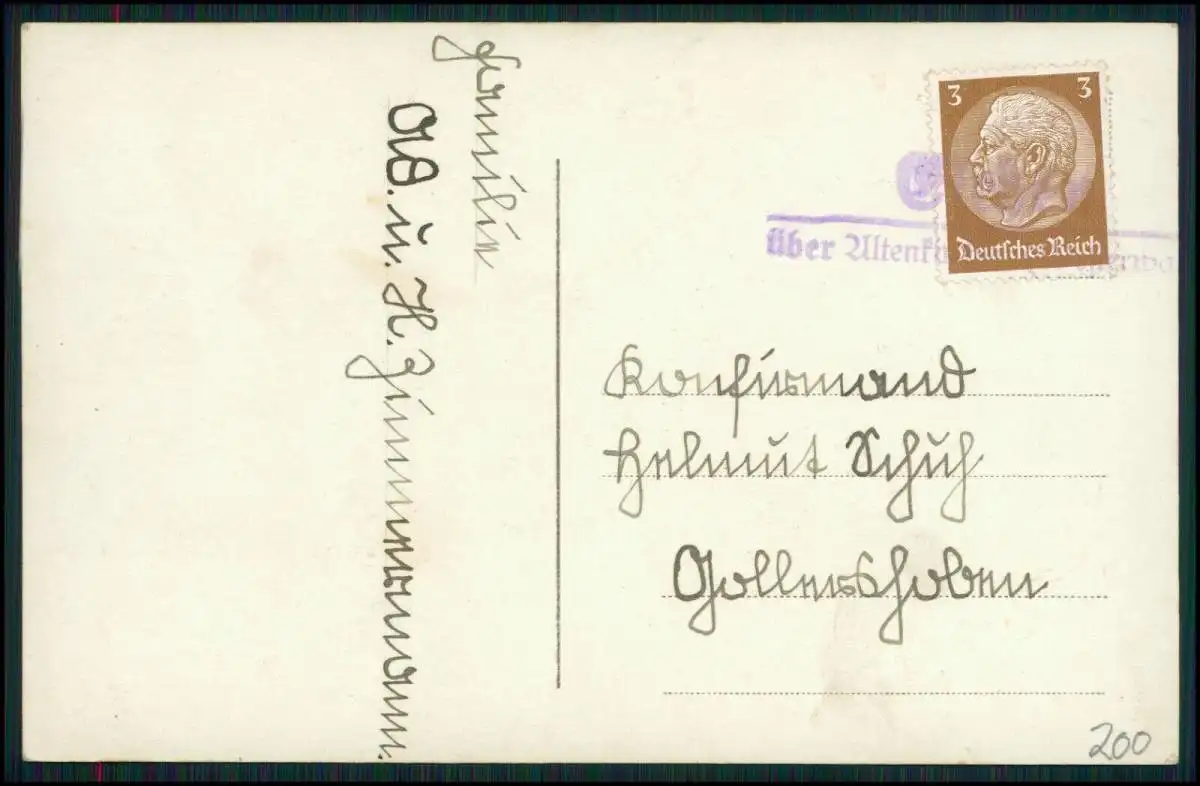 Familie
A. u. H. Zimmermann.
3 3
Deutsches Reich
über
Konfirmand
Helmut Schuh
Gollershoben
200